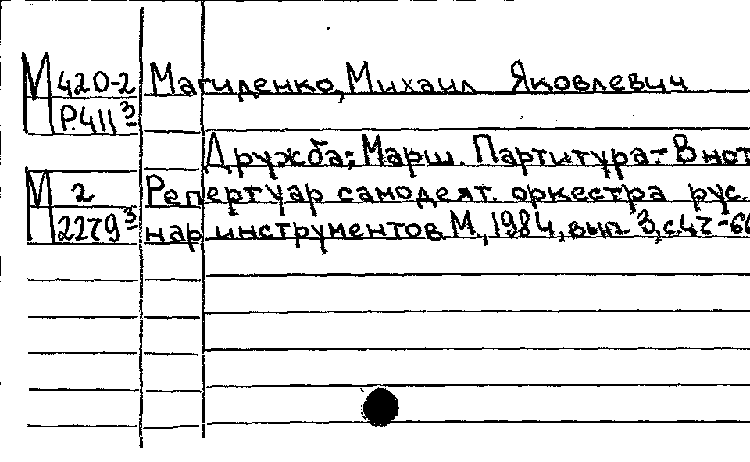 М 420-2 Магиденко, Михаил Яковлевич
Р411 3
Дружба: Марш. Партитура - В нот
М 2 Репертуар самодеят. оркестра рус.
2279 3 нар инструментов М., 1984, вып 3, с.47-66